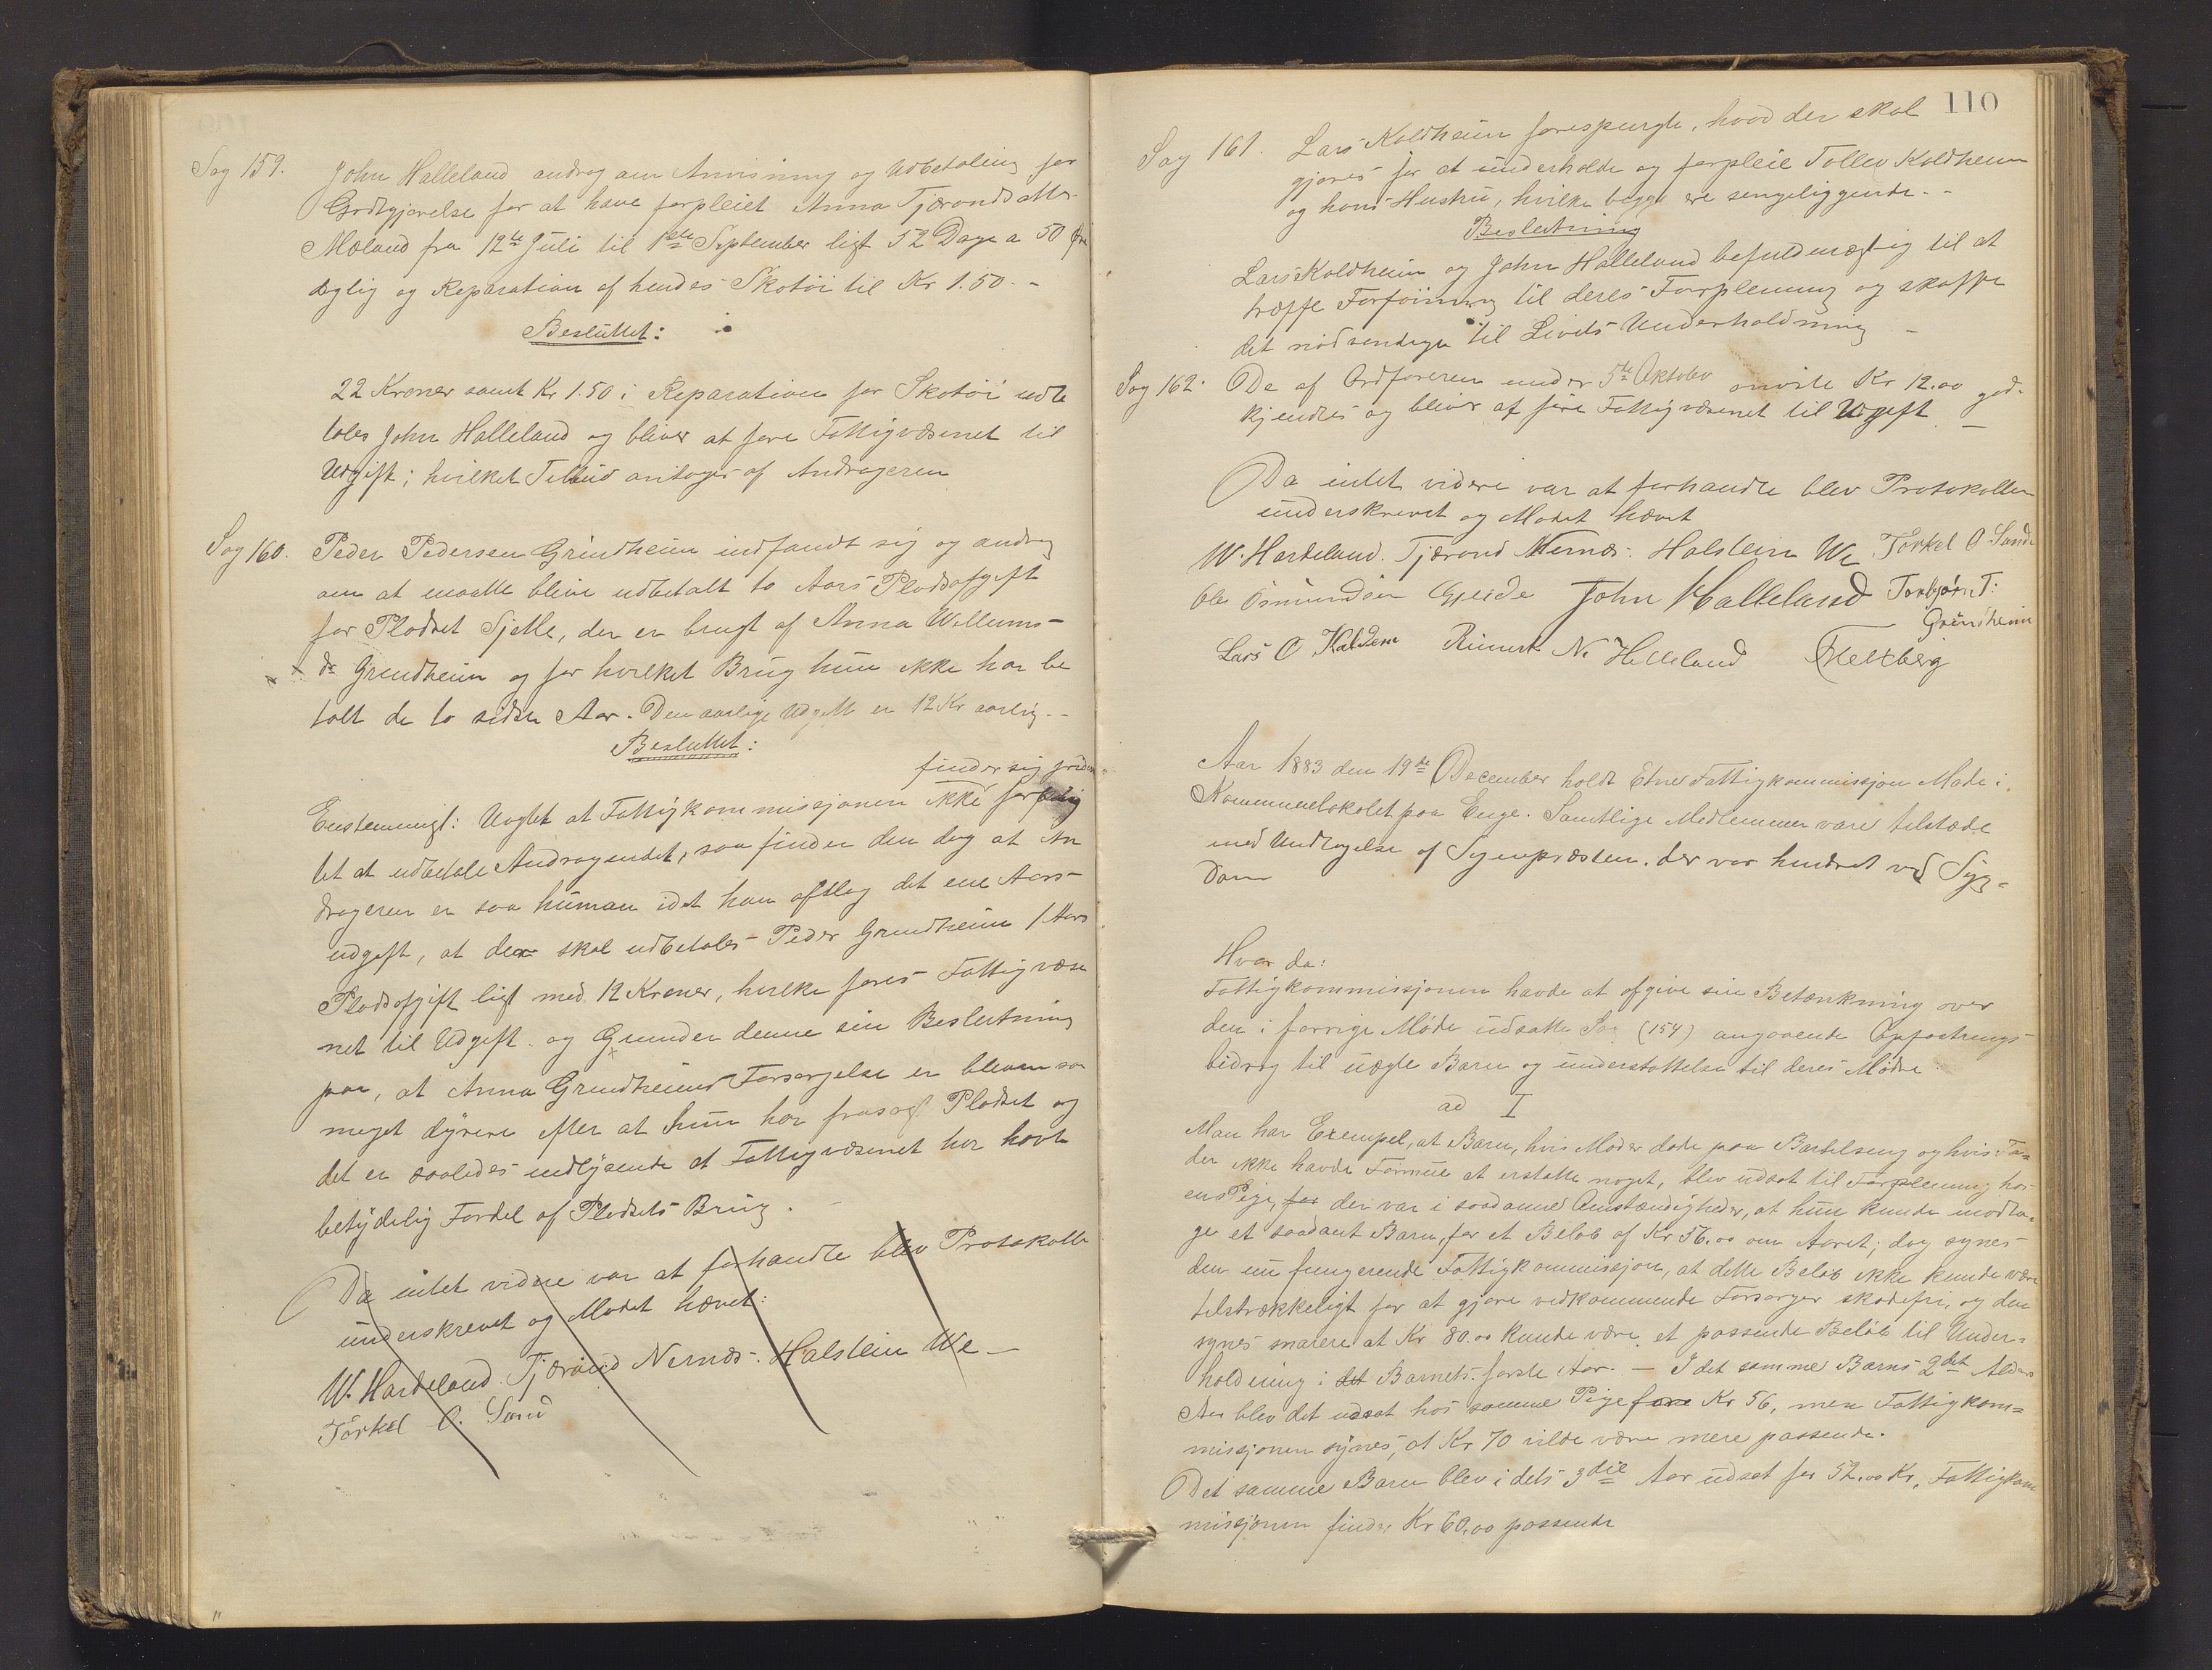 Sag 159. John Halleland androg om Anvisning og Udbetaling for
Godtgjørelse for at have forpleiet Anna Tjærandsdatter
Mæland fra 12te Juli til 1ste September ligt 52 Dage a 50 Øre
daglig og Reparation af hendes Skotøi til Kr 1.50.-
Besluttet:
22 Kroner samt Kr 1.50 i Reparation for Skotøi udbe
tales John Halleland og bliver at føre Fattigvæsenet til
Udgift; hvilket Tilbud antages af Andrageren
Sag 160. Peder Pedersen Grindheim indfandt sig og androg
om at maatte blive udbetalt to Aars Pladsafgift
for Pladset Sjette, der er brugt af Anna Willums-
dr Grindheim og for hvilket Brug hun ikke har be
talt de to sidste Aar. Den aarlige Udgift er 12 Kr aarlig.-
Besluttet:
finder sig
Enstemmigt: Uagtet at Fattigkommissjonen ikke
tet at udbetale Andragendet, saa finder den dog at An
drageren er saa human idet han aftlog det ene Aars-
udgift, at der skal udbetales Peder Grindheim 1 Aars
Pladsafgift ligt med 12 Kroner, hvilke føres Fattigvæse
net til Udgift og Grunder denne sin Beslutning
paa, at Anna Grindheims Forsørgelse er bleven saa
meget dyrere efter at hun har frasagt Pladset og
det er saaledes indlysende at Fattigvæsenet har havt
betydelig Fordel af Pladsets Brug.
Da intet videre var at forhandle blev Protokollen
underskrevet og Mødet hævet:
W. Hardeland Tjærand Nernæs. Halstein We
Torkel O. Sand
110
Sag 161. Lars Koldheim forespurgte, hvad der skal
gjøres for at underholde og forpleie Tollev Koldheim
og hans Hustru, hvilke begge ere sengeliggende.-
Beslutning
Lars Koldheim og John Halleland befuldmægtig til at
træffe Forføining til deres Forpleining og skaffe
det nødvendige til Livets Underholdning -
Sag 162. De af Ordføreren under 5te Oktober anviste Kr 12.00 god-
kjendtes og bliver at føre Fattigvæsenet til Udgift
Da intet videre var at forhandle blev Protokollen
underskrevet og Mødet hævet
W. Hardeland. Tjærand Nernæs. Halstein We Torkel O Sande
Ole Osmundsen Gjerde John Halleland Torbjørn T:
Grindheim
Lars O Kaldem Reinert N. Helleland
Aar 1883 den 19de December holdt Etne Fattigkommissjon Møde i
Kommunelokalet paa Enge. Samtlige Medlemmer vare tilstæde
med Undtagelse af Sognepræsten, der var hindret ved Syg-
dom
Hvor da:
Fattigkommissjonen havde at afgive sin Betænkning over
den i forrige Møde udsatte Sag (154) angaaende Opfostrings
bidrag til uægte Barn og understøttelse til deres Mødre:
ad I
Man har Exempel, at Barn, hvis Moder døde paa Barselseng og hvis Fa-
der ikke havde Formue at erstatte noget, blev udsat til Forpleining hos
en Pige, for der var i saadanne Omstændigheder, at hun kunde modta-
ge et saadant Barn, for et Beløb af Kr 56.00 om Aaret; dog synes
den nu fungerende Fattigkommissjon, at dette Beløb ikke kunde være
tilstrækkeligt for at gjøre vedkommende Forsørger skadefri, og den
synes snarere at Kr 80.00 kunde være et passende Beløb til Under-
holdning i det Barnets første Aar. - I det samme Barns 2det Alders
Aar blev det udsat hos samme Pige for Kr 56, men Fattigkom-
missjonen synes, at Kr 70 vilde være mere passende.
Det samme Barn blev i dets 3die Aar udsat for 52.00 Kr, Fattigkom
missjonen finder Kr 60.00 passende